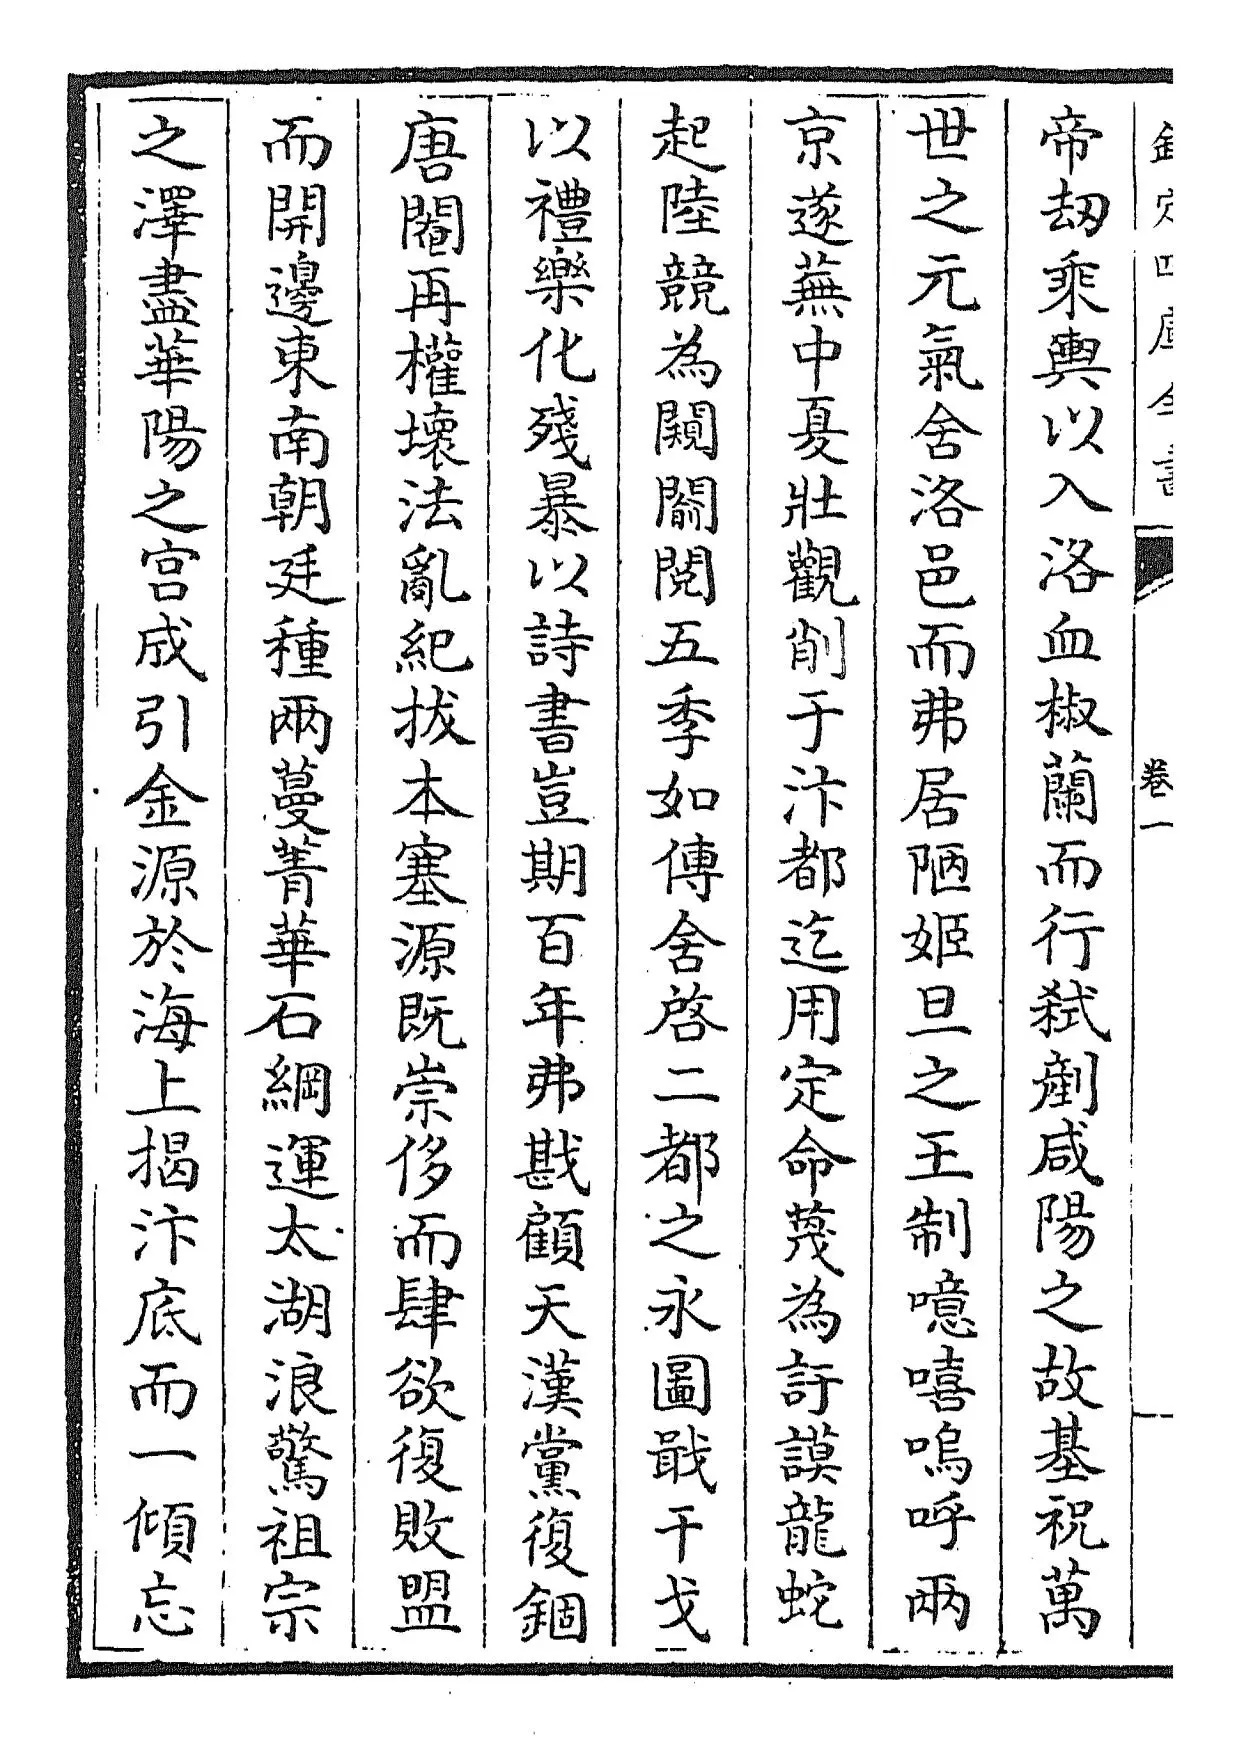 欽定四庫全書
卷一
帝刼乘輿以入洛血椒蘭而行弑劃咸陽之故基祝萬
世之元氣舍洛邑而弗居陋姬旦之王制噫嘻嗚呼兩
京遂蕪中夏壯觀削于汴都迄用定命蔑為訏謨龍蛇
起陸競為闚闟閱五季如傳舍啓二都之永圖戢干戈
以禮樂化殘暴以詩書豈期百年弗戡顧天漢黨復錮
唐閹再權壞法亂紀拔本塞源既崇侈而肆欲復敗盟
而開邊東南朝廷種兩蔓菁華石綱運太湖浪驚祖宗
之澤盡華陽之宫成引金源於海上揭汴底而一傾忘